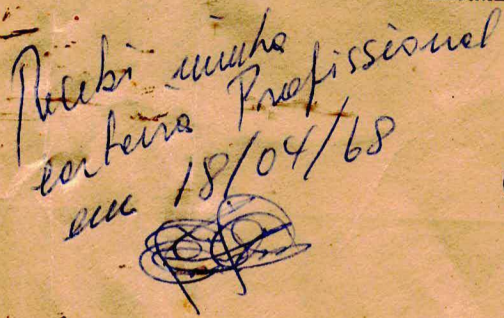 Recebi minha
carteira Profissional
em 18/04/68